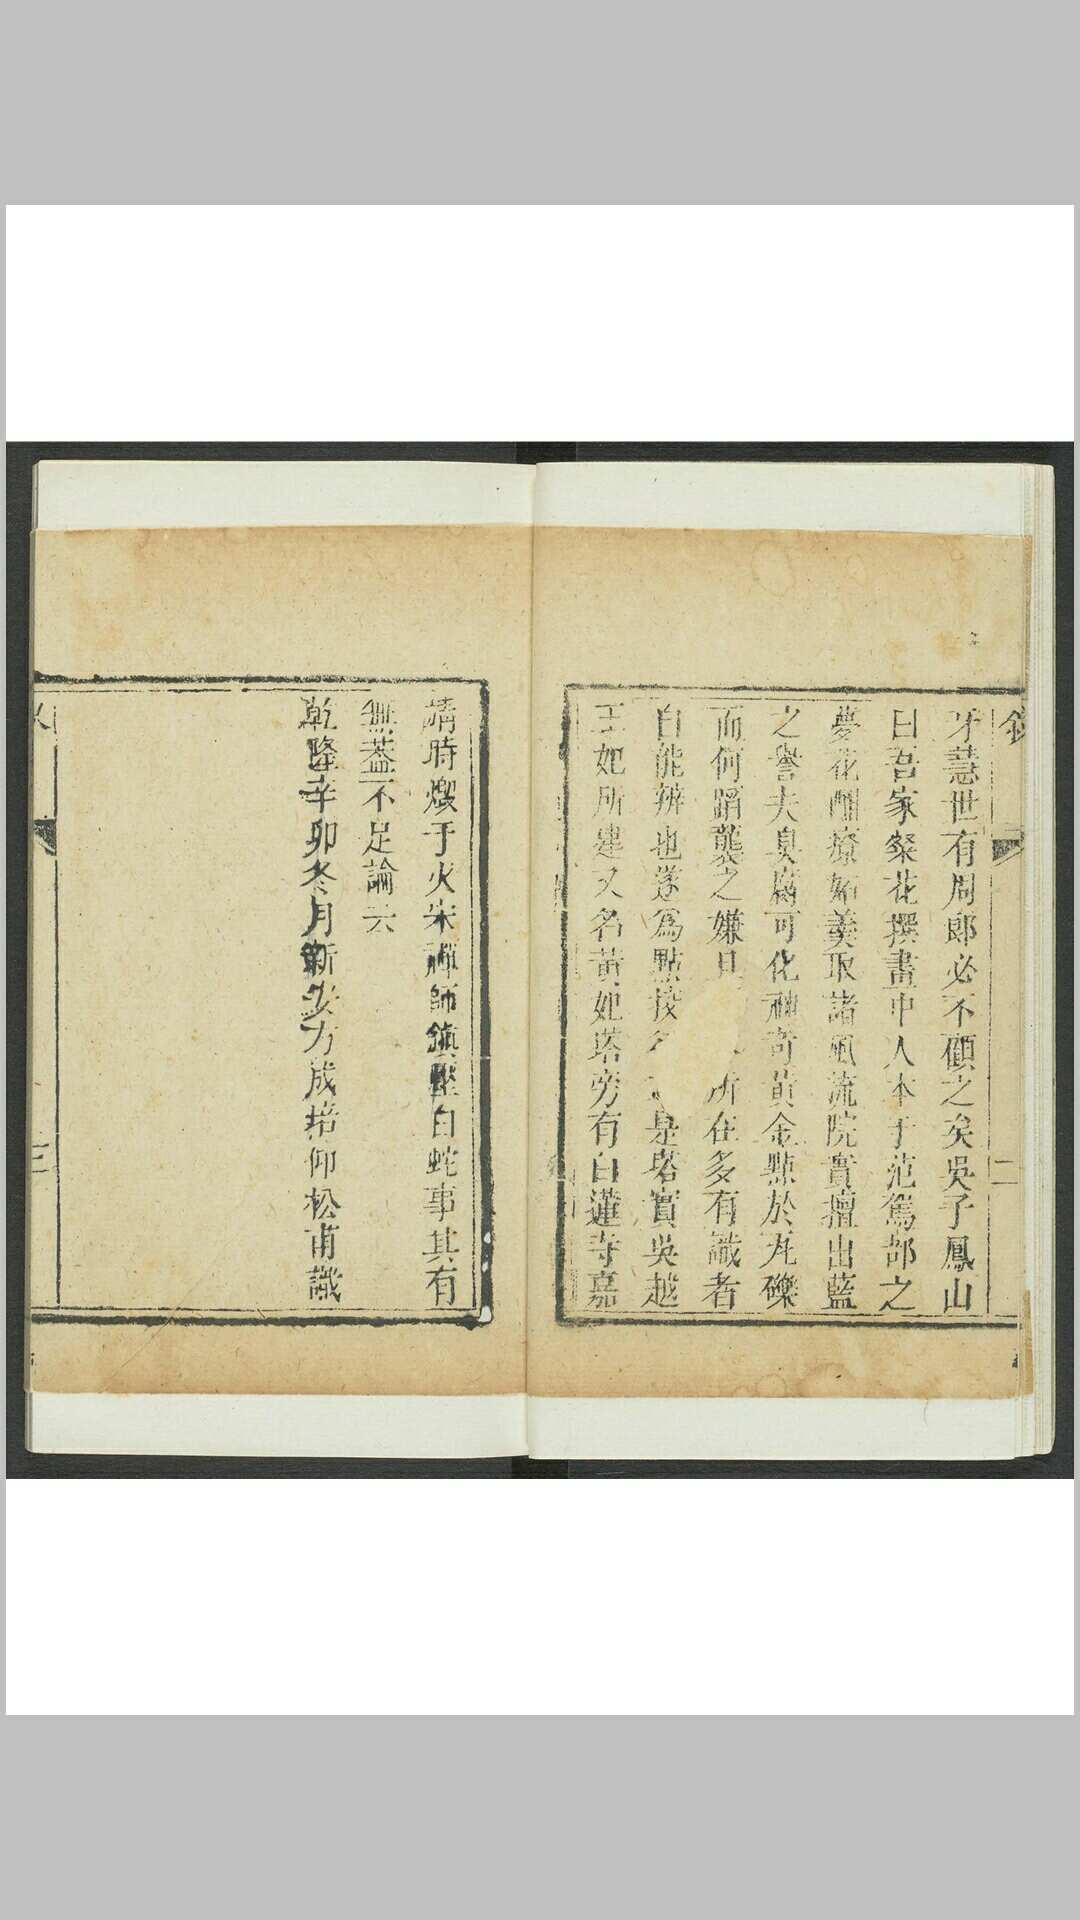 牙慧世有周郎必不顧之矣吳子鳳山
曰吾家粲花撰畫中人本于范駕部之
夢花酣療妬羹取諸風流院實擅出藍
之譽夫臭腐可化神奇黃金點於瓦礫
而何蹈襲之嫌且 所在多有識者
自能辨也遂爲點按 是塔實吳越
王妃所建又名黃妃塔旁有白蓮寺嘉
二
靖時燬于火宋禪師鎮壓白蛇事其有
無葢不足論云
乾隆辛卯冬月新安方成培仰松甫識
三